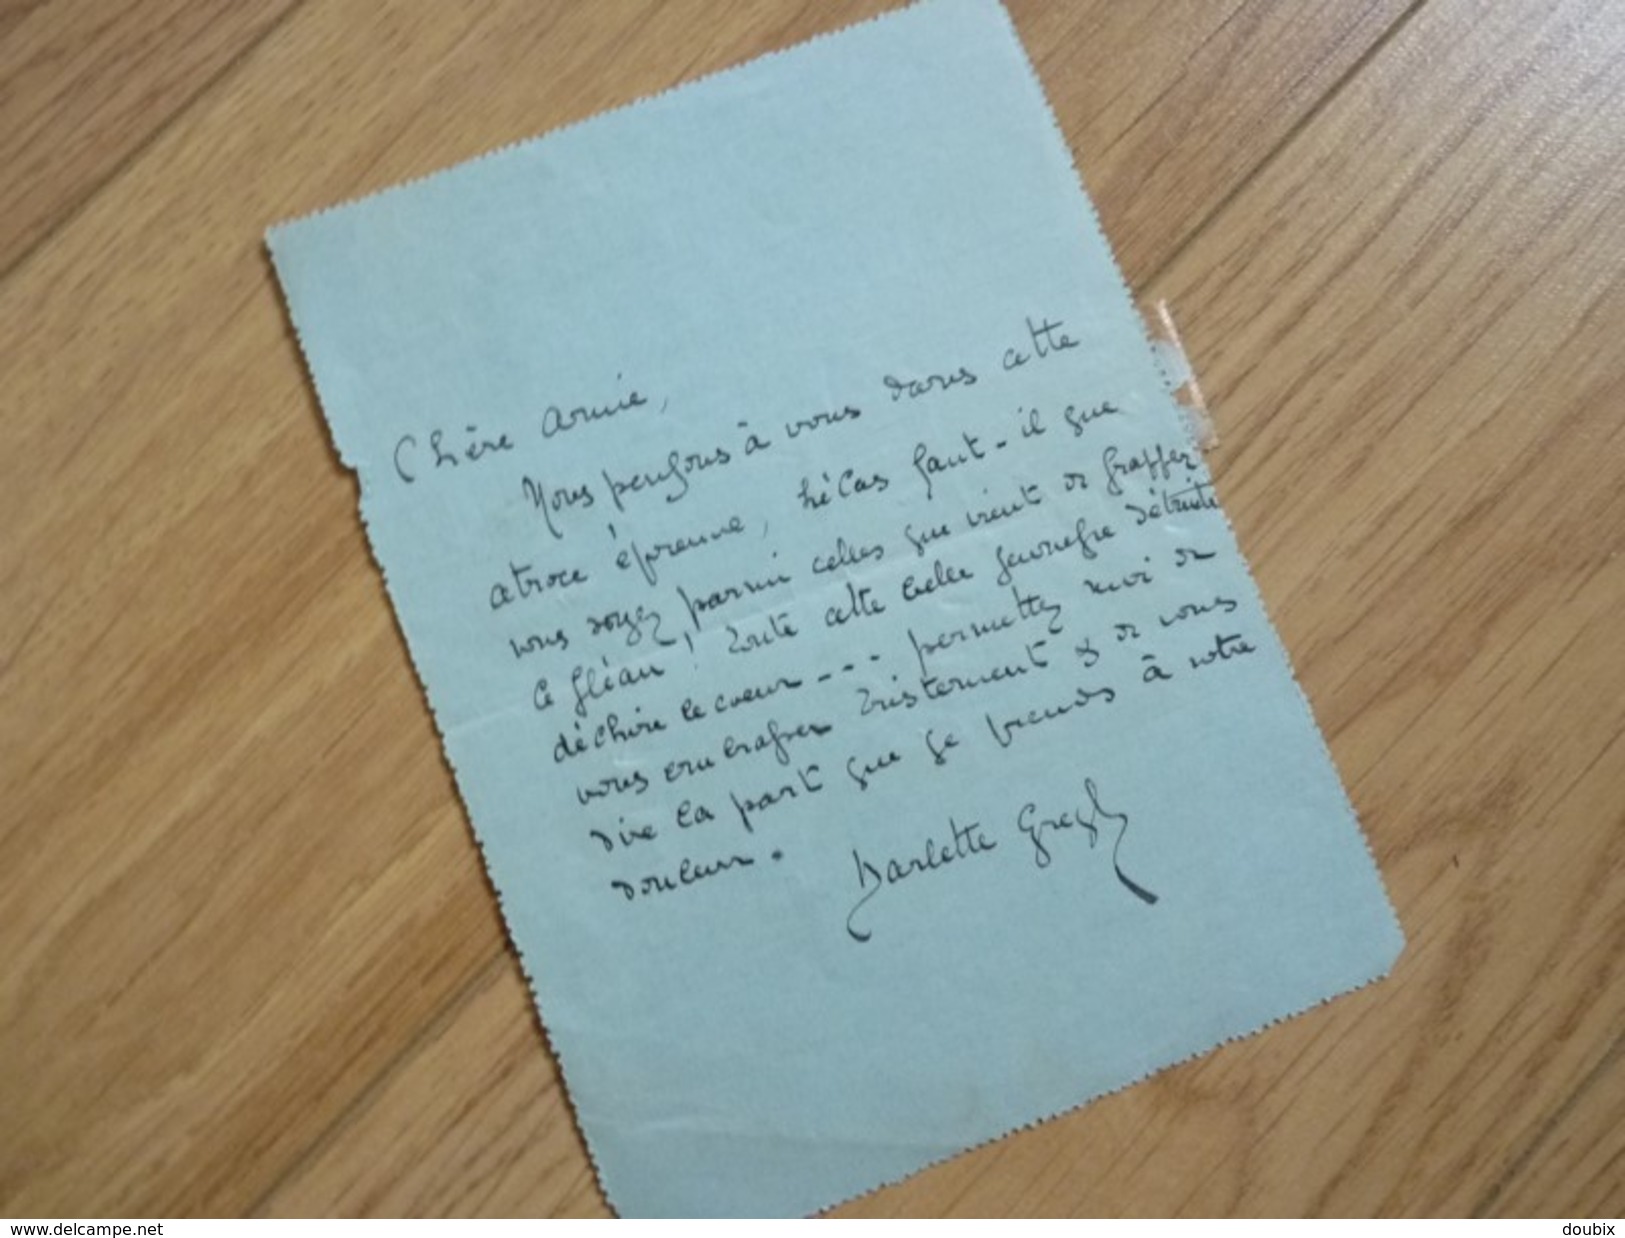 Chère amie,
Nous pensons à vous dans cette
atroce épreuve, hélas faut-il que
vous soyez parmi celles que vient de frapper
le fléau! Toute cette belle jeunesse détruite
déchire le coeur --- permettez moi de
vous embrasser tristement & de vous
dire la part que je prends à votre
douleur.
Harlette Gregh
www.delcampe.net
doubix